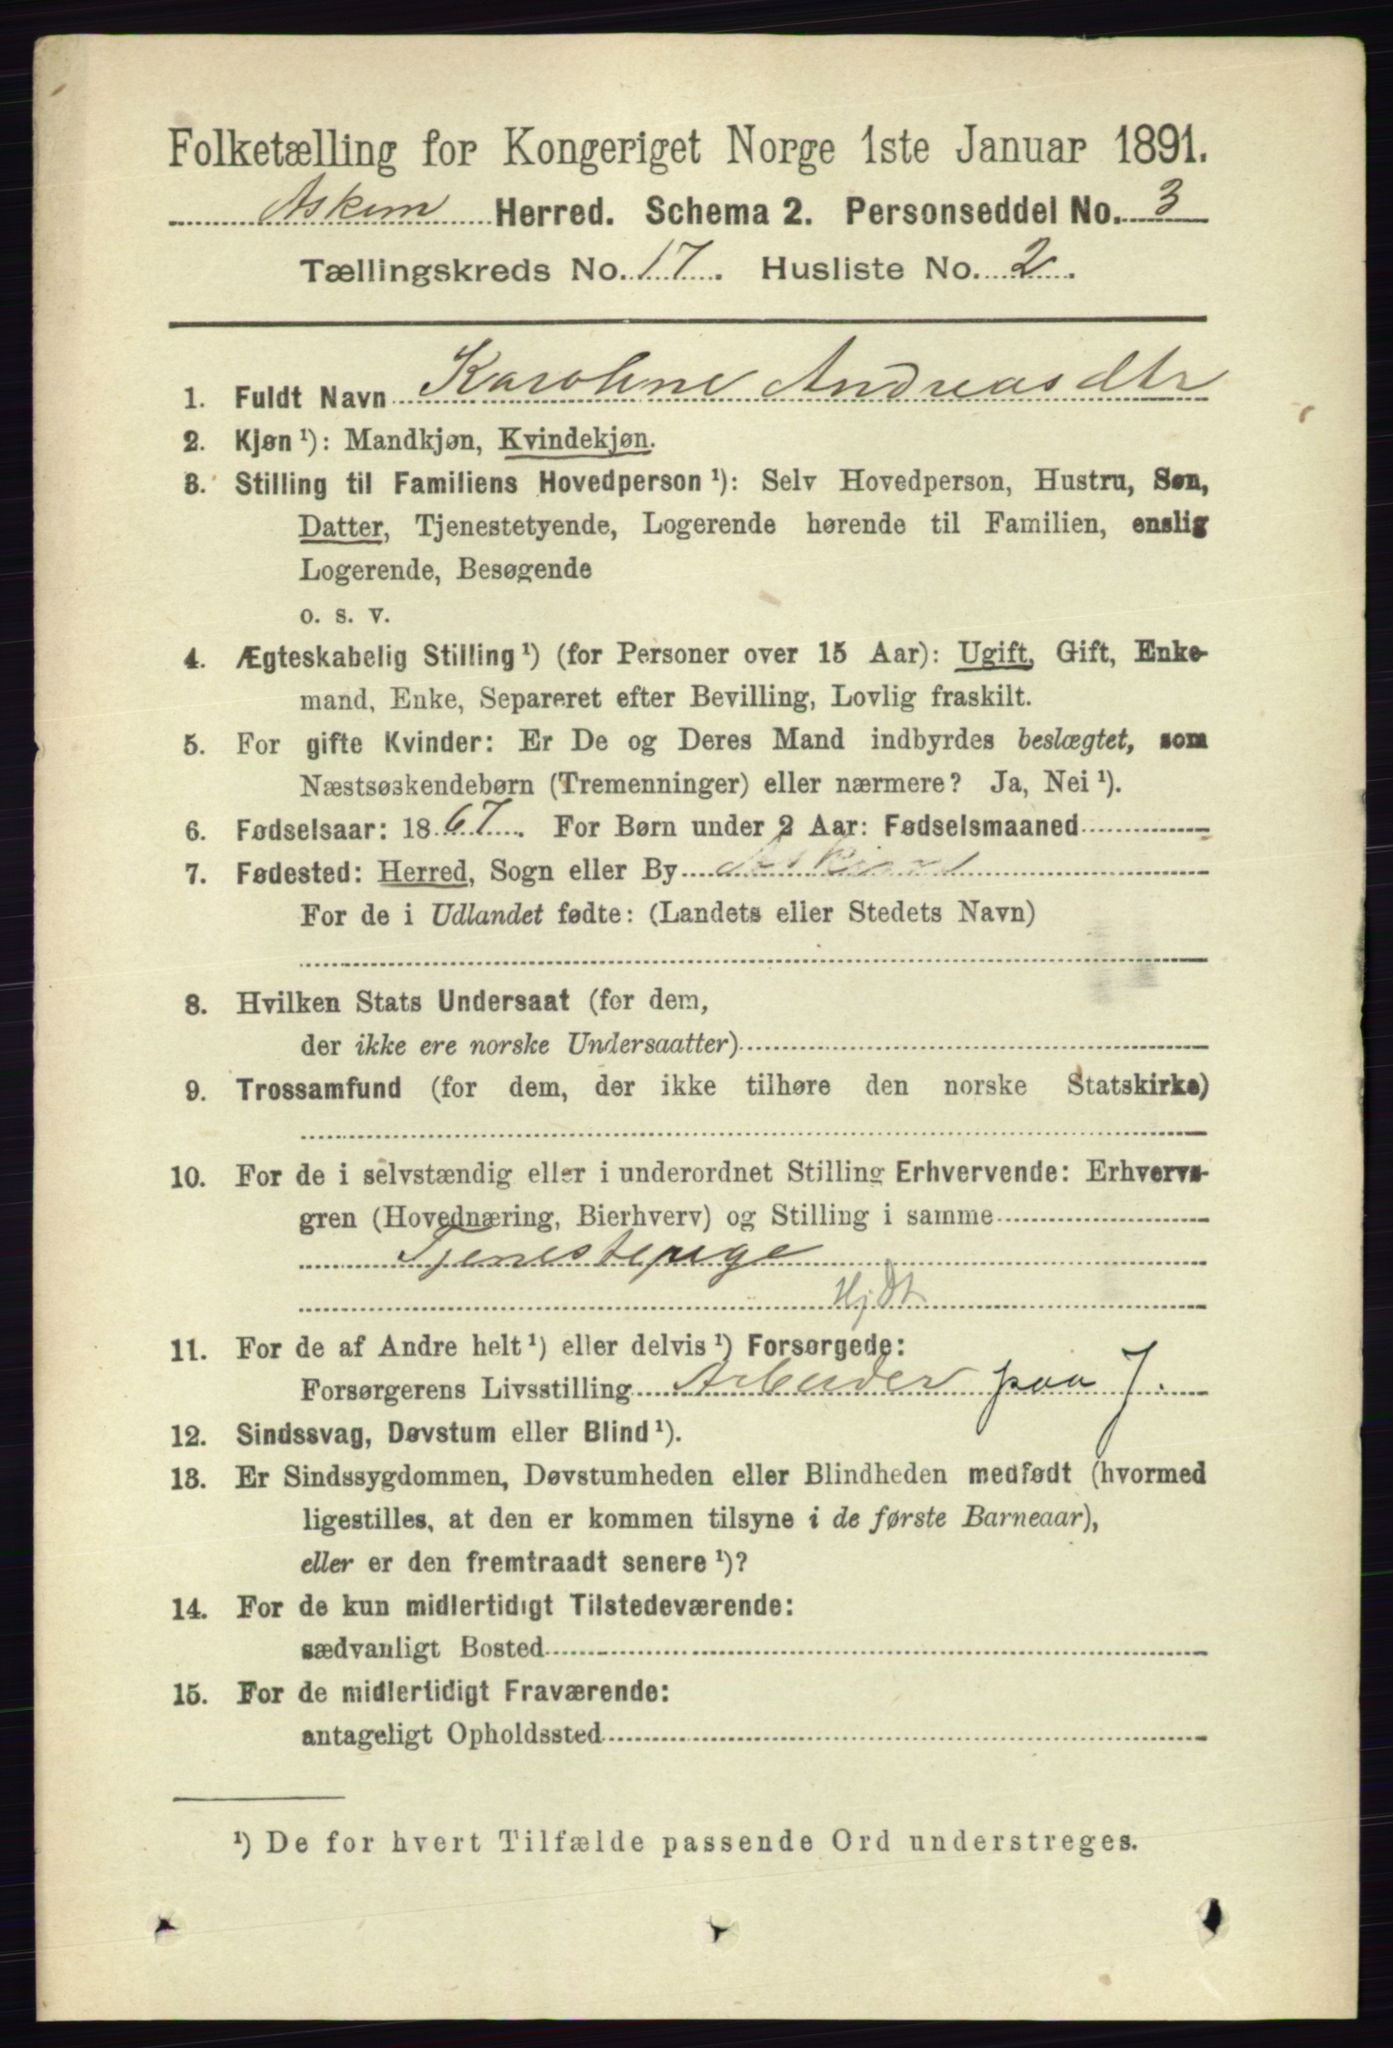 Folketælling for Kongeriget Norge 1ste Januar 1891.
Askim Herred. Schema 2. Personseddel No. 3
Tællingskreds No. 17. Husliste No. 2.
1. Fuldt Navn Karoline Andreasdtr
2. Kjøn ¹): Mandkjøn, Kvindekjøn.
3. Stilling til Familiens Hovedperson ¹): Selv Hovedperson, Hustru, Søn,
Datter, Tjenestetyende, Logerende hørende til Familien, enslig
Logerende, Besøgende
o. s. v.
4. Ægteskabelig Stilling ¹) (for Personer over 15 Aar): Ugift, Gift, Enke-
mand, Enke, Separeret efter Bevilling, Lovlig fraskilt.
5. For gifte Kvinder: Er De og Deres Mand indbyrdes beslægtet, som
Næstsøskendebørn (Tremenninger) eller nærmere? Ja, Nei ¹).
6. Fødselsaar: 1867. For Børn under 2 Aar: Fødselsmaaned
7. Fødested: Herred, Sogn eller By Askim
For de i Udlandet fødte: (Landets eller Stedets Navn)
8. Hvilken Stats Undersaat (for dem,
der ikke ere norske Undersaatter)
9. Trossamfund (for dem, der ikke tilhøre den norske Statskirke)
10. For de i selvstændig eller i underordnet Stilling Erhvervende: Erhvervs-
gren (Hovednæring, Bierhverv) og Stilling i samme
Tjenestepige
Hjdt
11. For de af Andre helt ¹) eller delvis ¹) Forsørgede:
Forsørgerens Livsstilling Arbeider paa J.
12. Sindssvag, Døvstum eller Blind ¹).
13. Er Sindssygdommen, Døvstumheden eller Blindheden medfødt (hvormed
ligestilles, at den er kommen tilsyne i de første Barneaar),
eller er den fremtraadt senere ¹)?
14. For de kun midlertidigt Tilstedeværende:
sædvanligt Bosted
15. For de midlertidigt Fraværende:
antageligt Opholdssted
¹) De for hvert Tilfælde passende Ord understreges.